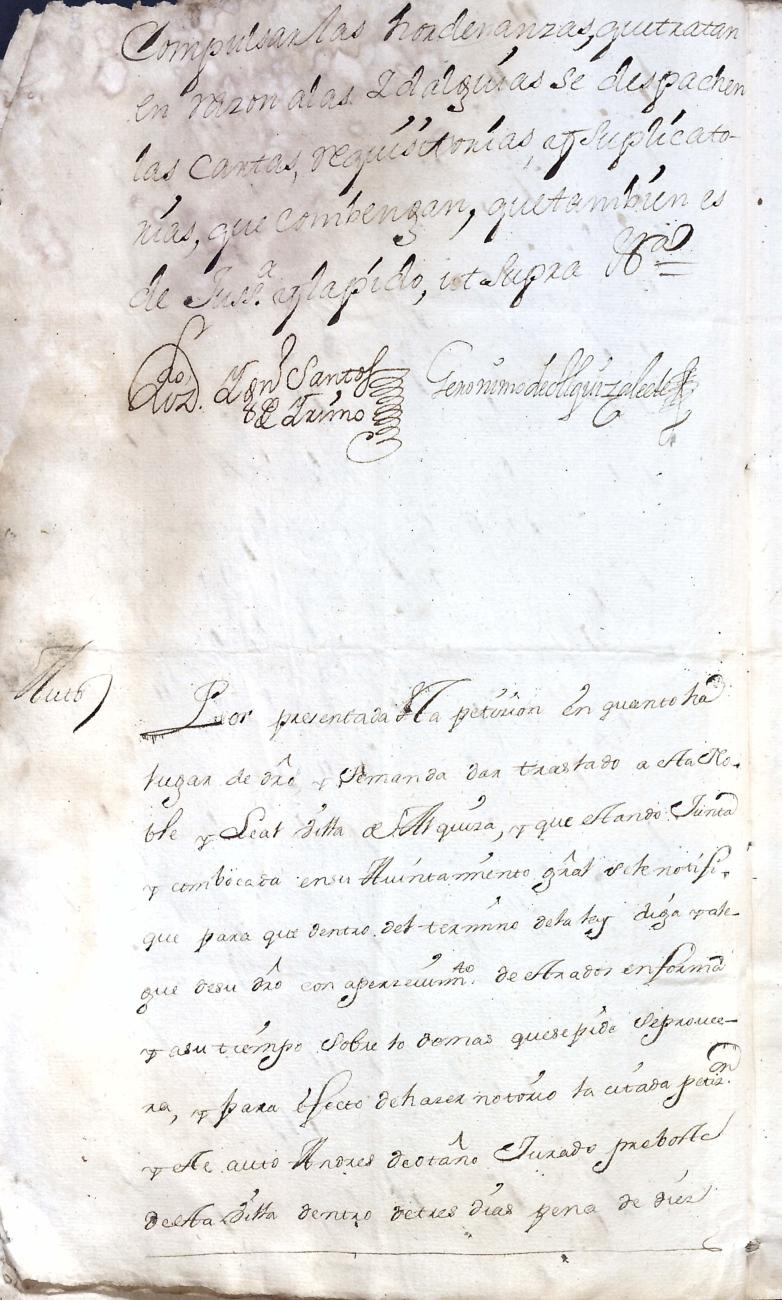 Compulsar las hordenanzas, que tratan
en razon alas Idalguias se despachen
las cartas, requisitorias, y Suplicato-
rias, que combengan, que tambien es
de Juss.a y la pido, ut Supra
Liz.do Dn Santos
de Trimo
Geronimo de
Auto
Por presentada esta petizion En quanto ha
lugar de dro y Semanda dar traslado a esta No-
ble y Leal Villa de Alquiza, y que estando Junta
y combocada en su Aiuntamiento gral se le notifi-
que para que dentro del termino de la ley diga y ale-
gue de su dro con aperzeuim.to de estrados en forma
y a su tiempo Sobre lo demas que se pide Se provee-
ra, y para efecto de hazer notorio la citada petiz.on
y este auto Andres de otaño Jurado preboste
de esta Villa dentro de tres dias pena de diez